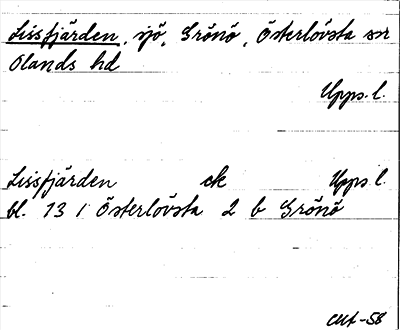 Lissfjärden, sjö, Grönö, Österlövsta sn
Olands hd
Upps. l.
Lissfjärden ek Upps. l.
bl. 13 / Österlövsta 2 b Grönö
-58